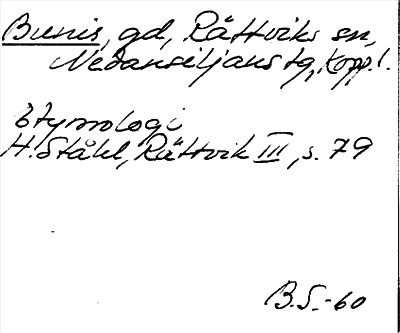 Bunis, gd, Rättviks sn,
Nedansiljans tg, Kopp.l.
Etymologi
H. Ståhl, Rättvik III, s. 79
B.S.-60